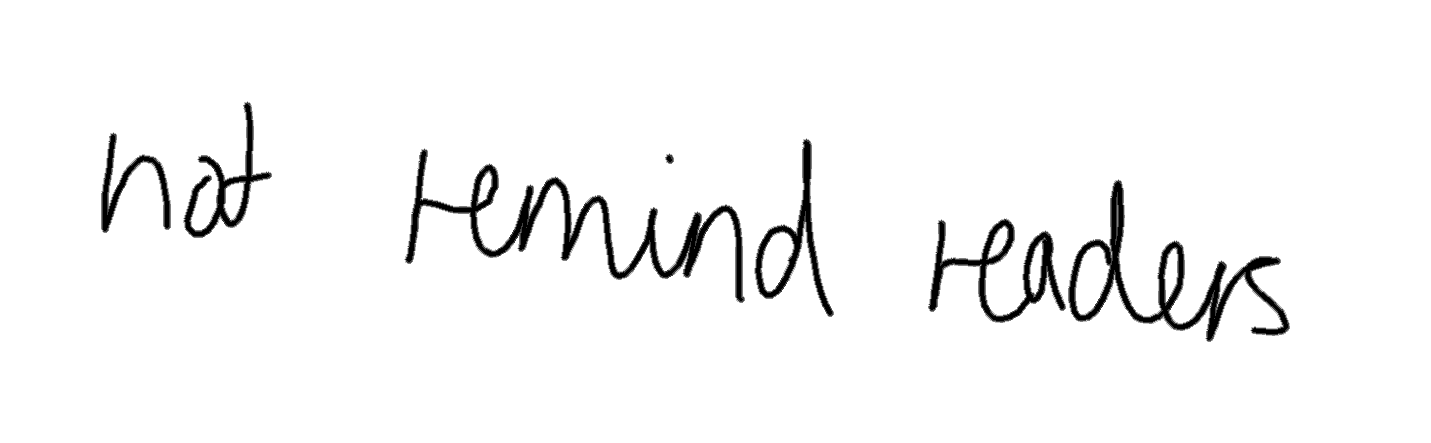 not remind readers